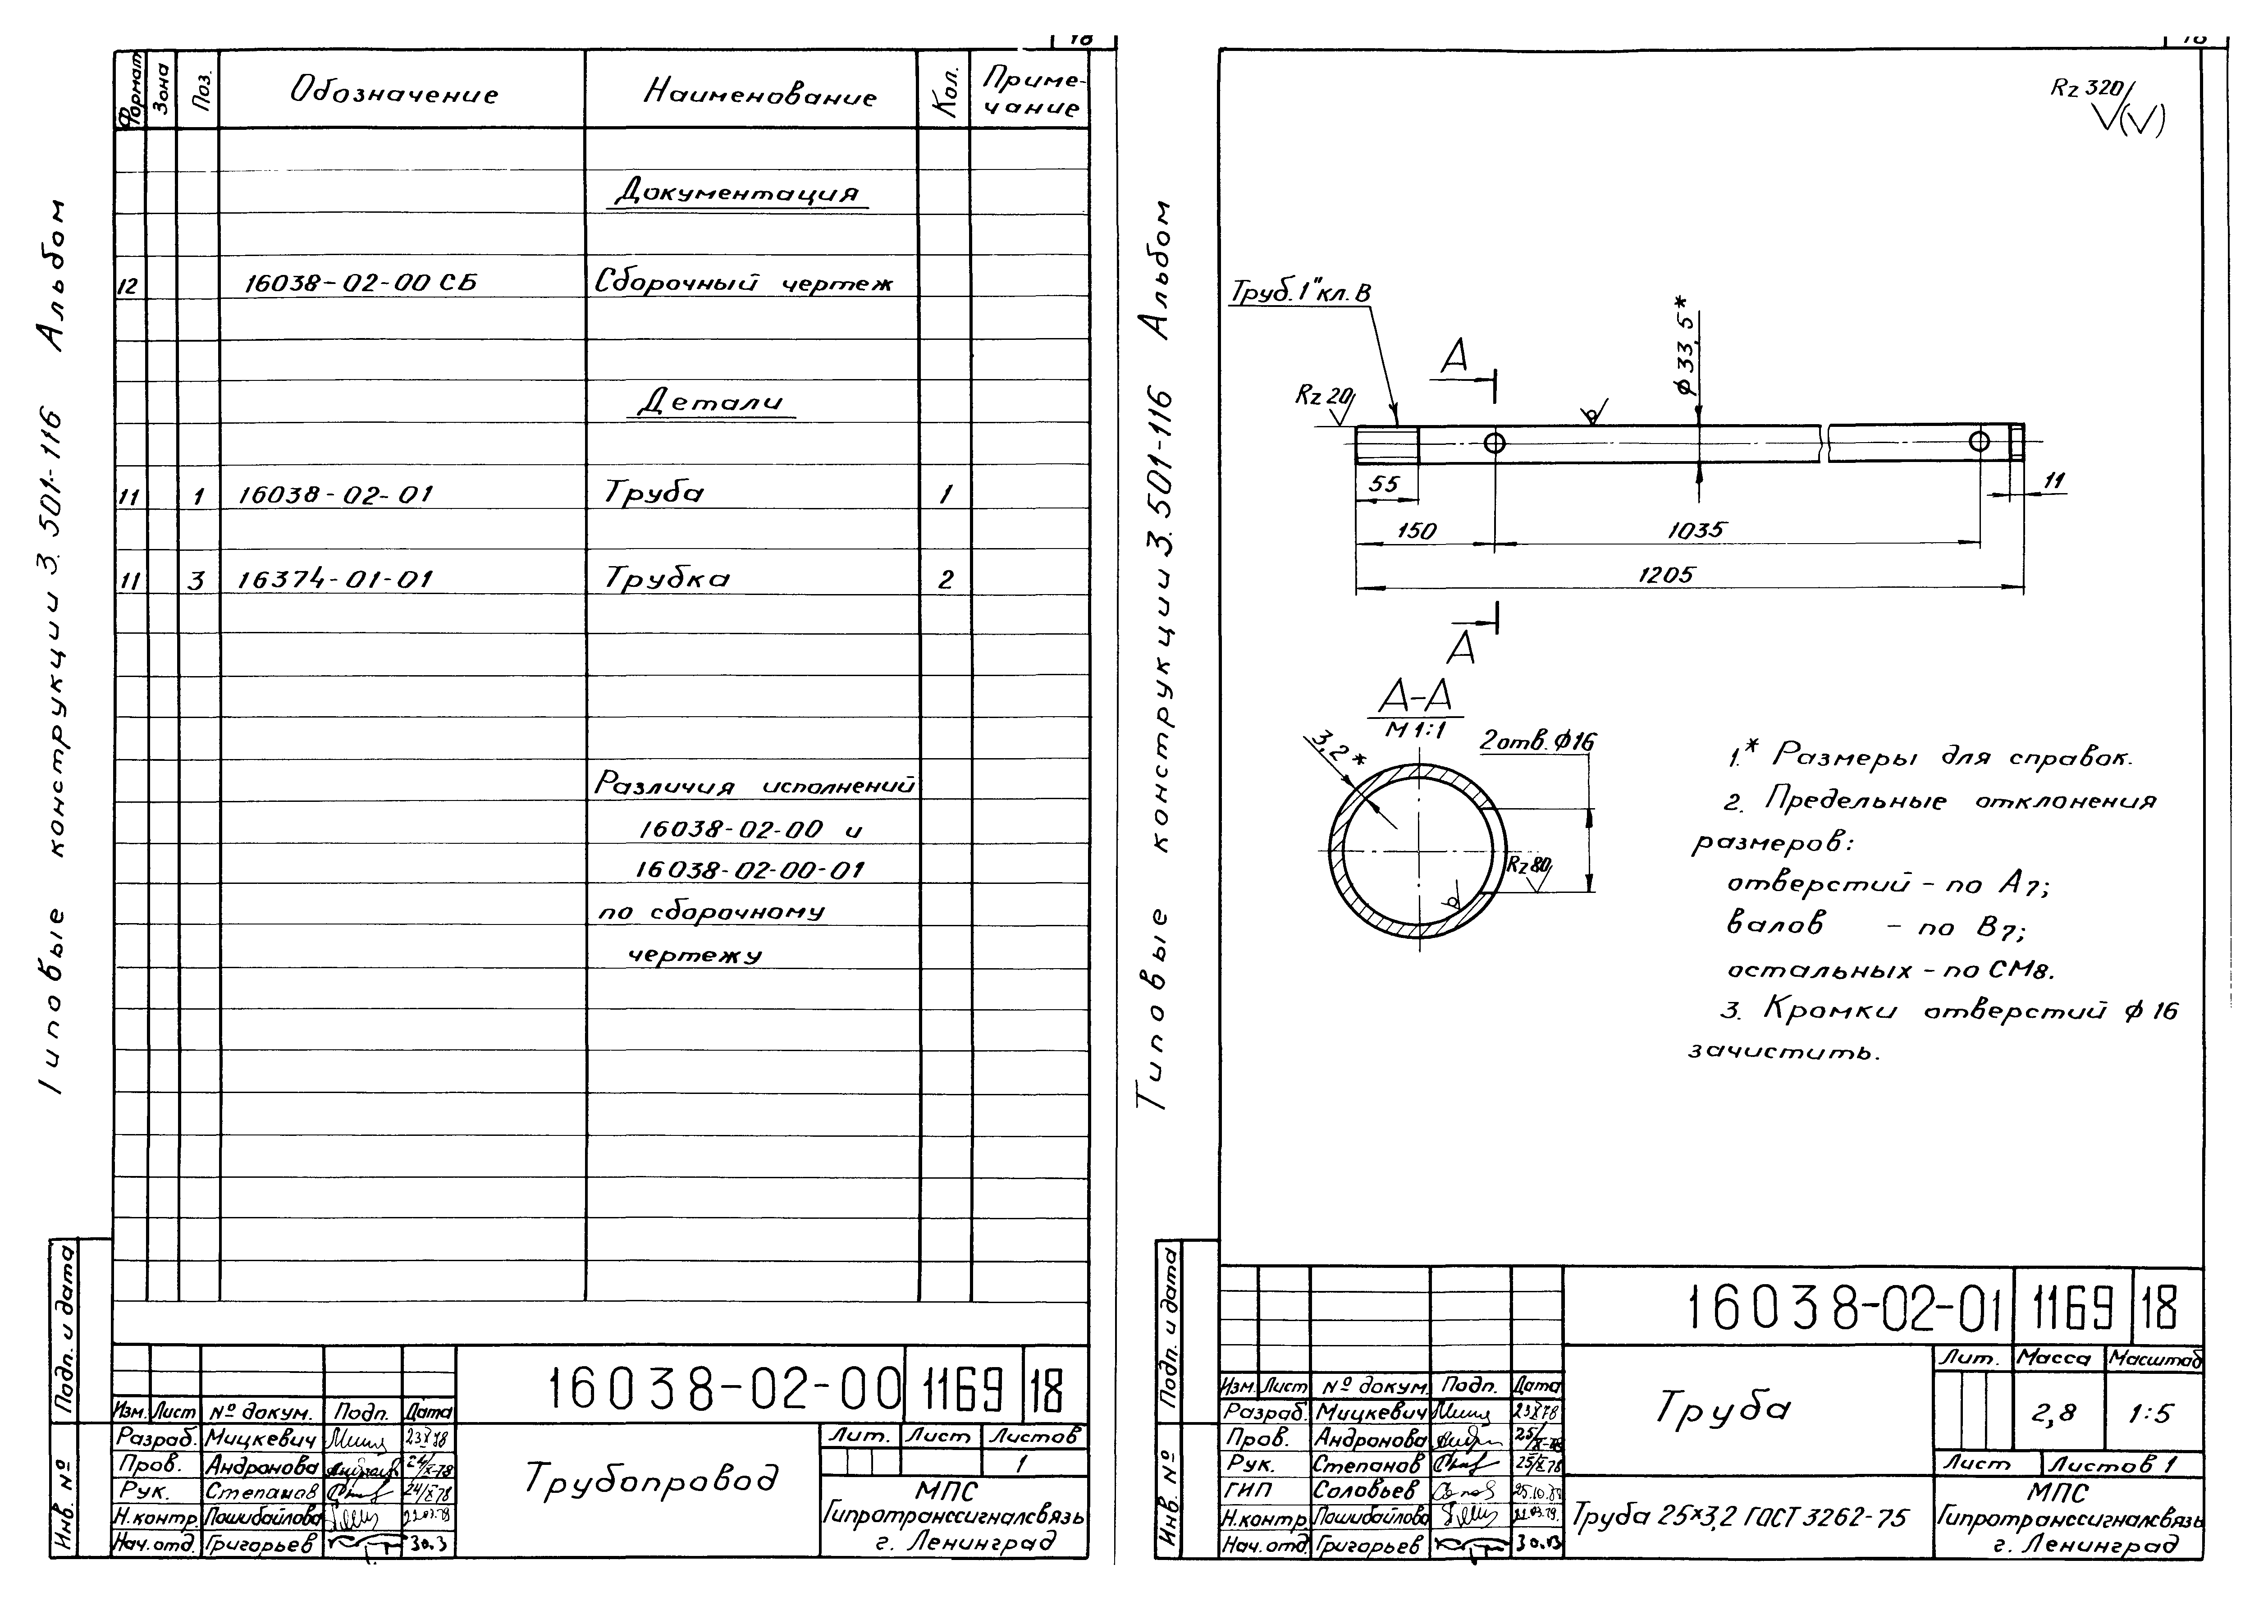 18
Формат Зона Поз. Обозначение Наименование Кол. Приме-
чание
Документация
12 16038-02-00 СБ Сборочный чертеж
Детали
11 1 16038-02-01 Труба 1
11 3 16374-01-01 Трубка 2
Различия исполнений
16038-02-00 и
16038-02-00-01
по сборочному
чертежу
Типовые конструкции 3.501-116 Альбом
Подп. и дата
Инв. №
16038-02-00 1169 18
Изм. Лист № докум. Подп. Дата
Разраб. Мицкевич 23X78
Пров. Андронова 24/X-78
Рук. Степанов 24/X78
Н.контр. Пошибайлова
Нач.отд. Григорьев 30.3
Трубопровод
Лит. Лист Листов
1
МПС
Гипротранссигналсвязь
г. Ленинград
18
Rz 320 (√)
Типовые конструкции 3.501-116 Альбом
Труб. 1" кл. В
А
Rz 20
ϕ 33,5*
55
11
150
1035
1205
А
А-А
М 1:1
3,2*
2отв. ϕ16
Rz 80
1.* Размеры для справок.
2. Предельные отклонения
размеров:
отверстий - по А7;
валов - по В7;
остальных - по СМ8.
3. Кромки отверстий ϕ 16
зачистить.
Подп. и дата
Инв. №
16038-02-01 1169 18
Изм. Лист № докум. Подп. Дата
Разраб. Мицкевич 23X78
Пров. Андронова 25/X-78
Рук. Степанов 25/X78
ГИП Соловьев
Н.контр. Пошибайлова
Нач.отд. Григорьев
Труба
Лит. Масса Масштаб
2,8 1:5
Лист Листов 1
Труба 25×3,2 ГОСТ 3262-75
МПС
Гипротранссигналсвязь
г. Ленинград